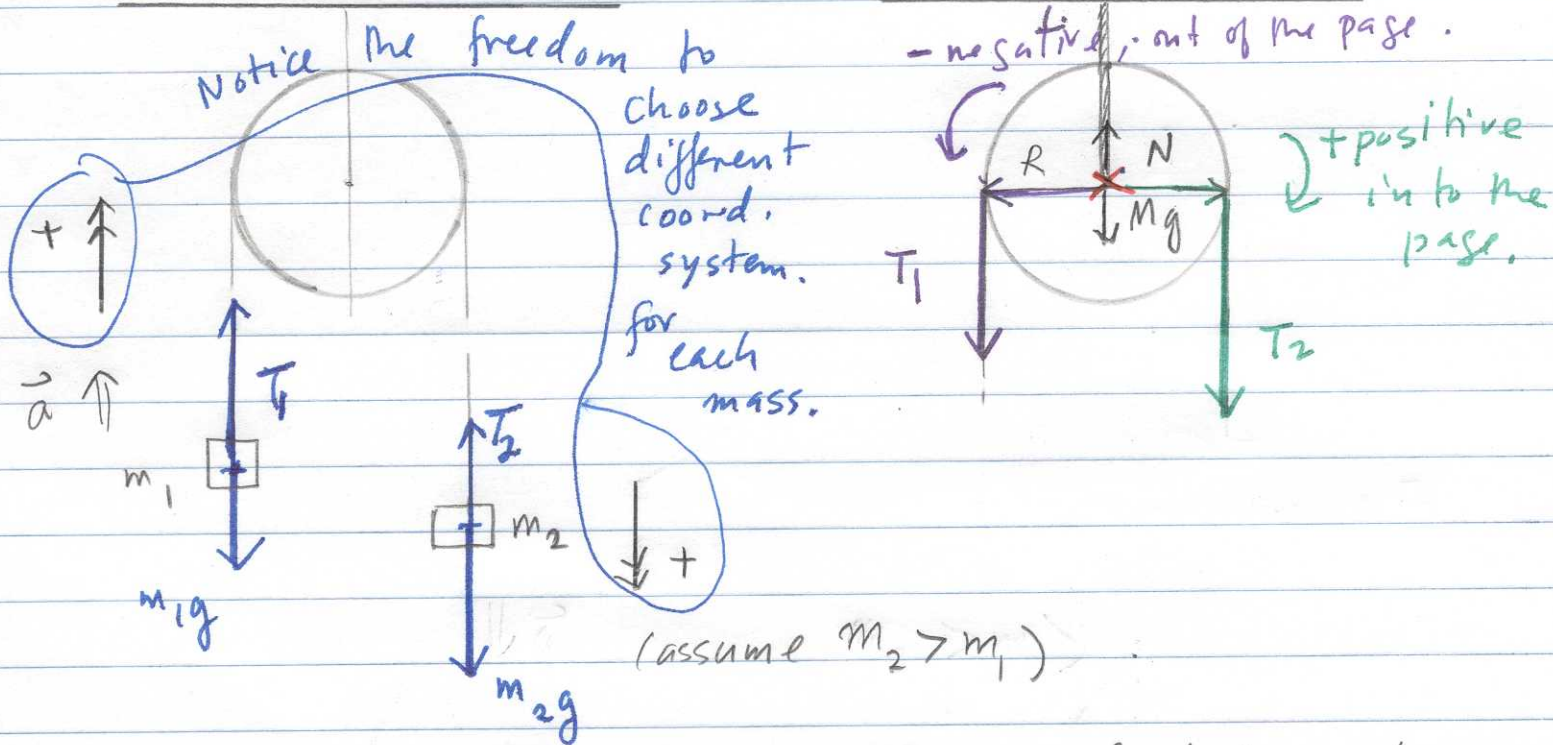 Notice the freedom to
choose
different
coord.
system.
for
each
mass.
+
a⃗
T1
m1
m1g
T2
m2
m2g
+
(assume m2 > m1)
- negative, out of the page.
R
N
Mg
T1
T2
+ positive
in to the
page.